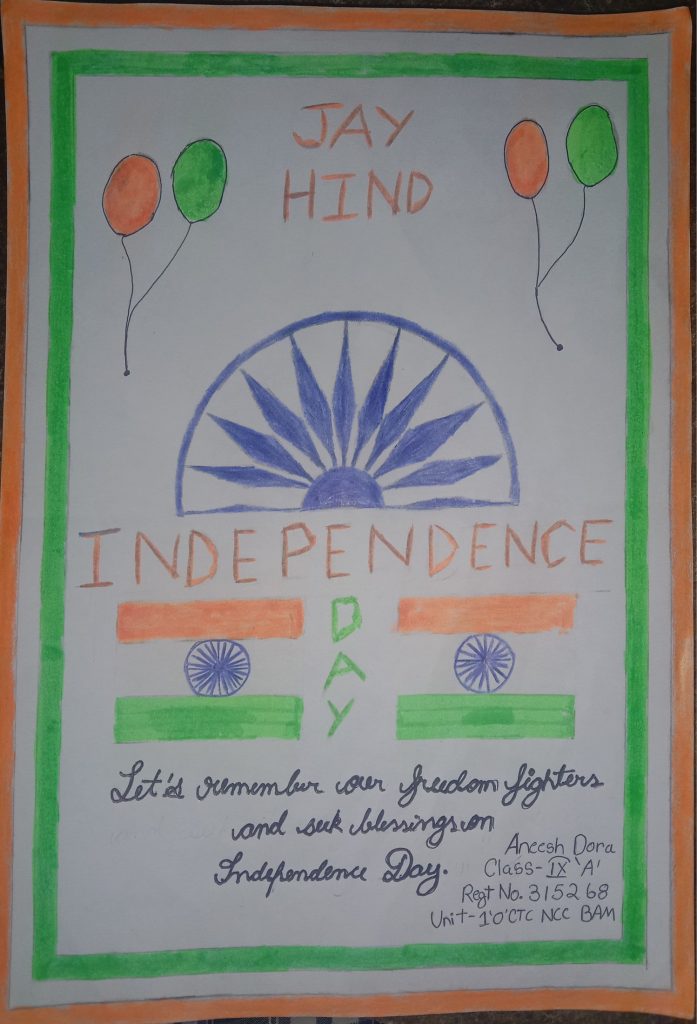 JAY
HIND
INDEPENDENCE
DAY
Let's remember our freedom fighters
and seek blessings on
Independence Day.
Aneesh Dora
Class-IX 'A'
Regt No. 315268
Unit-1'O'CTC NCC BAM